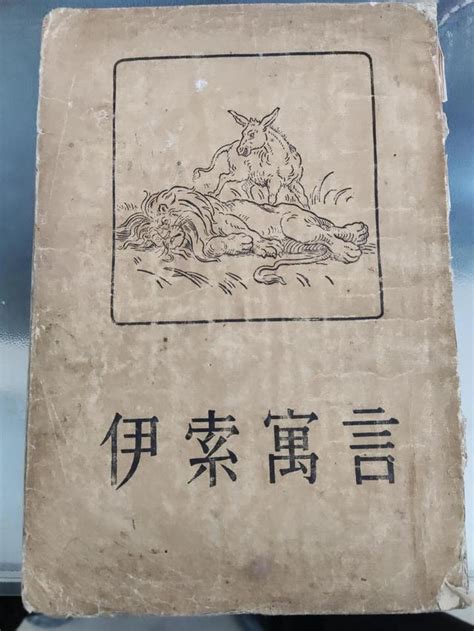 伊索寓言